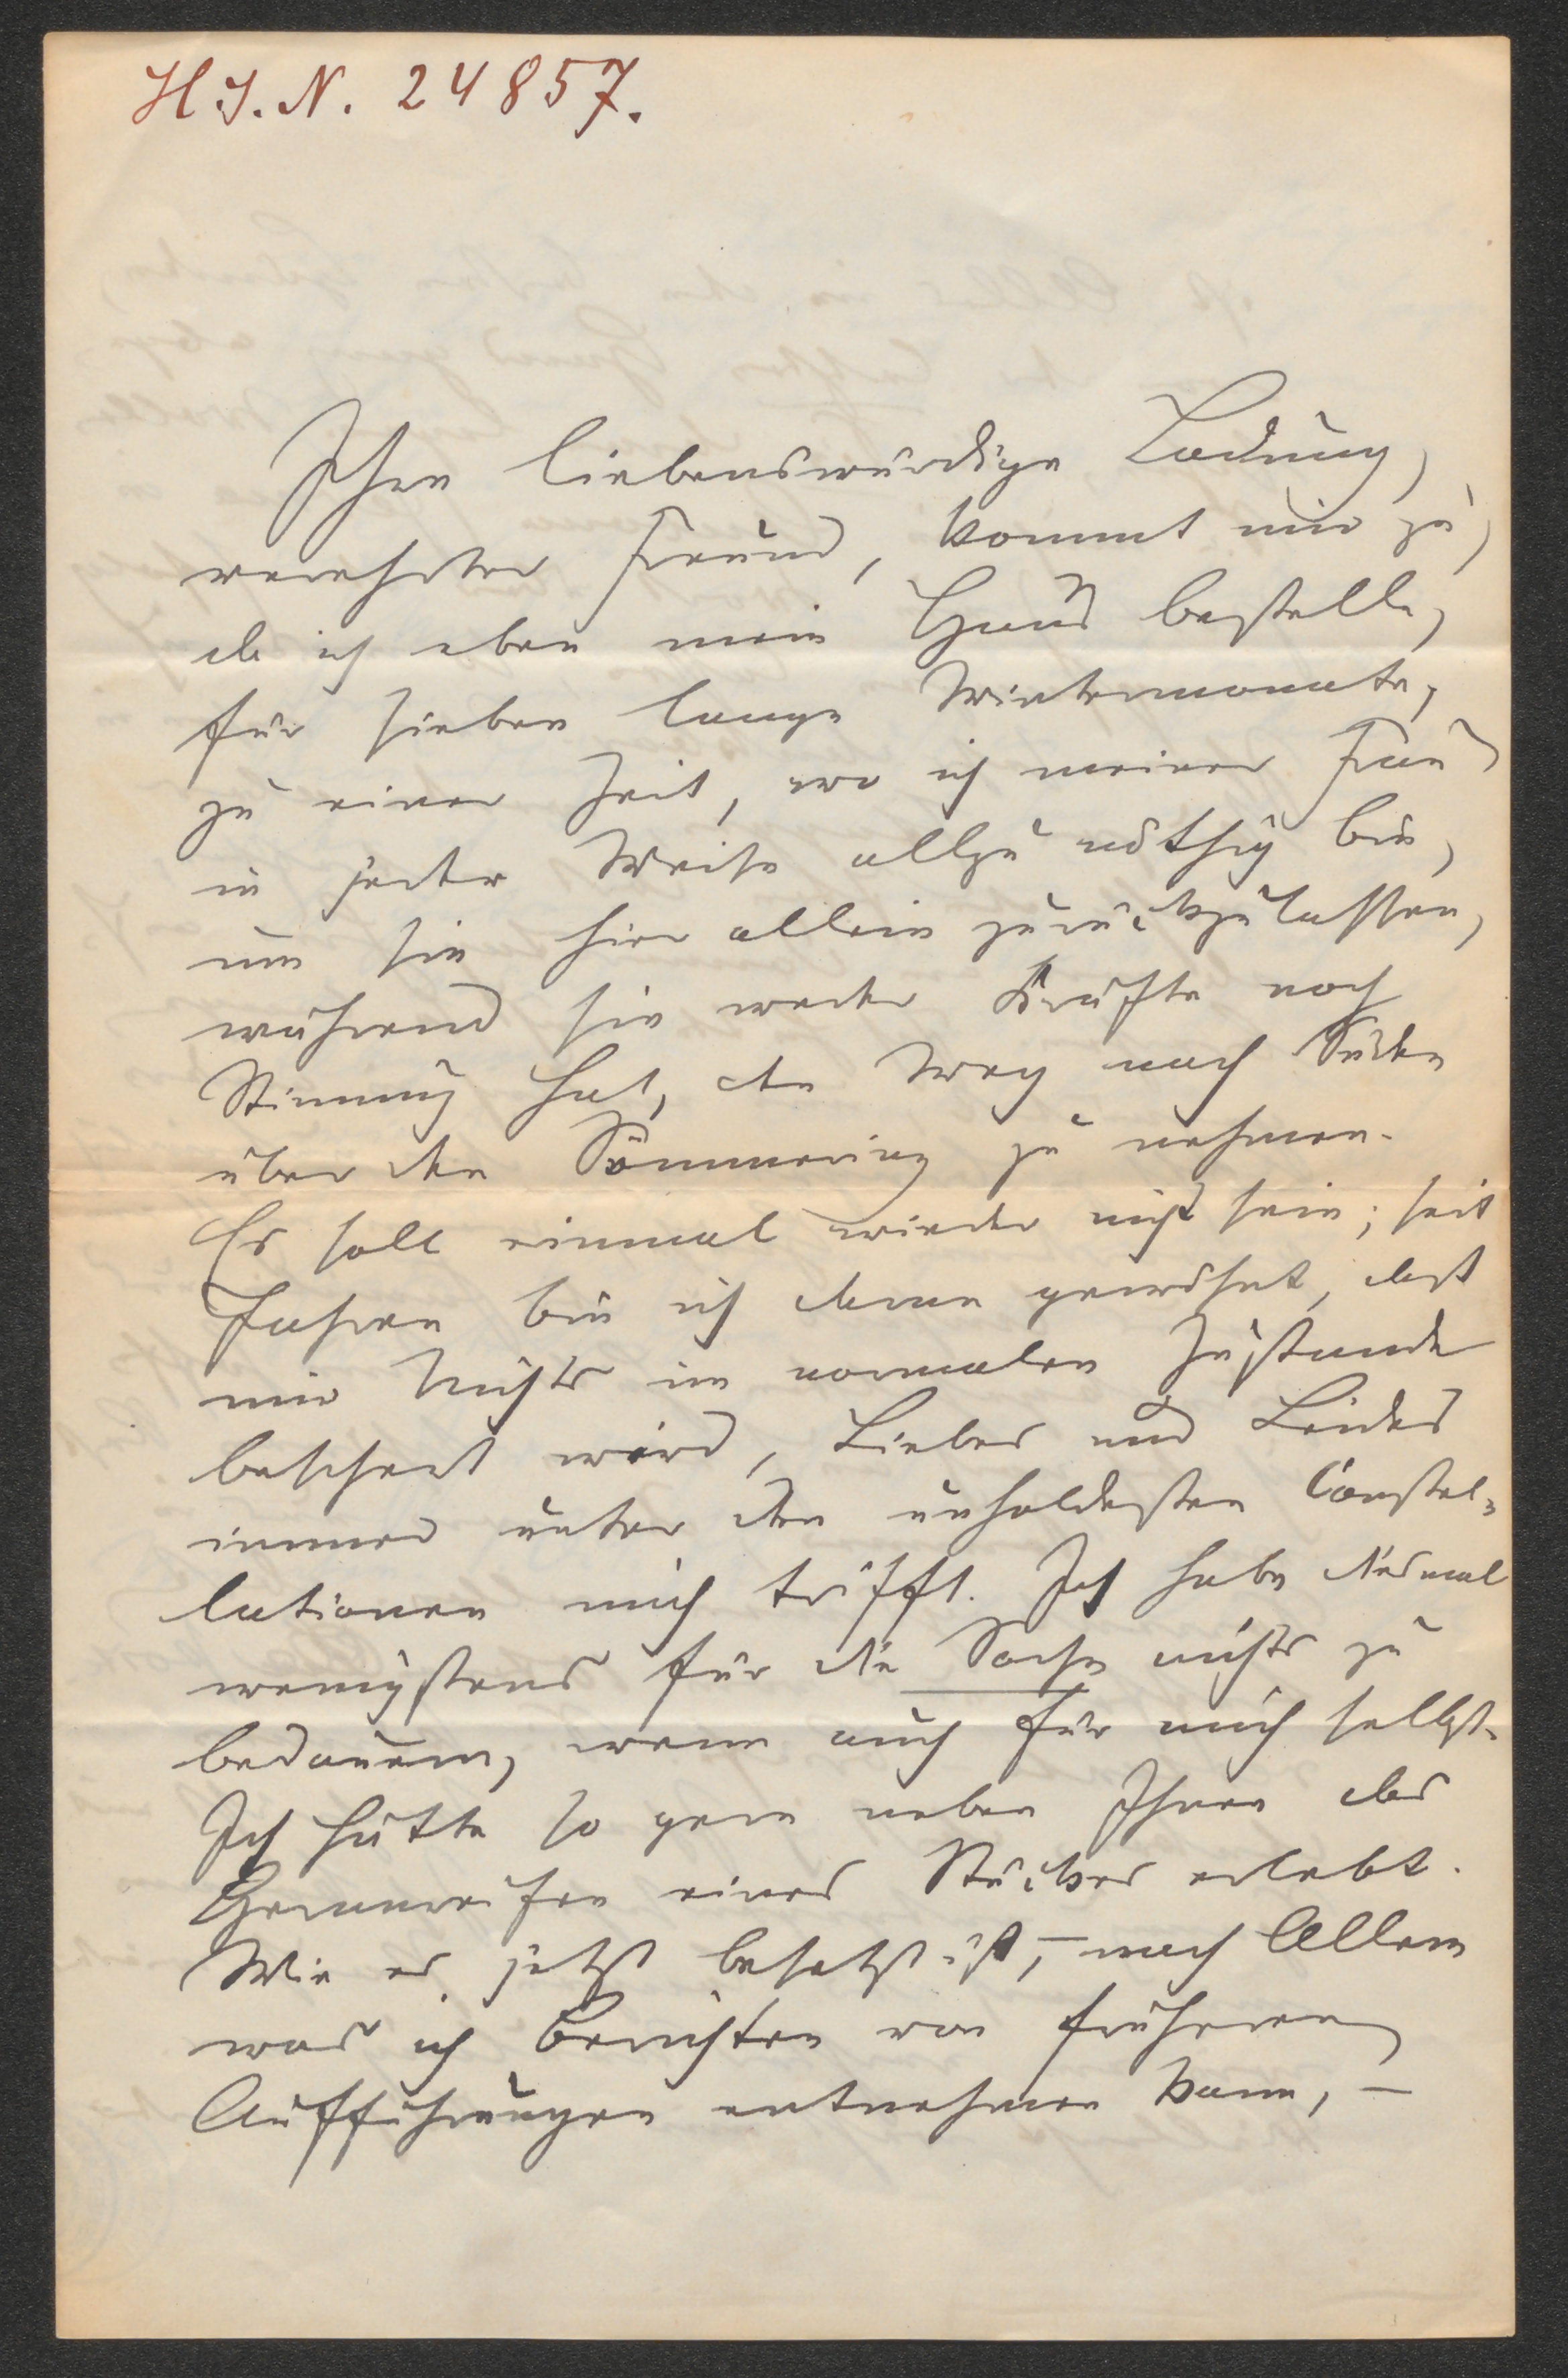 H.I.N. 24857.
Ihre liebenswürdige Ladung,
verehrter Freund, kommt mir zu,
da ich eben mein Haus bestelle,
für sieben lange Wintermonate,
zu einer Zeit, wo ich meiner Frau
in jeder Weise allzu nöthig bin,
um sie hier allein zurückzulassen,
während sie weder Kräfte noch
Stimmung hat, den Weg nach Süden
über den Sömmering zu nehmen.
Es soll einmal wieder nicht sein; seit
Jahren bin ich daran gewöhnt, daß
mir Nichts im normalen Zustande
beschert wird, Liebes und Leides
immer unter den unholdesten Constel-
lationen mich trifft. Ich habe diesmal
wenigstens für die Sache nichts zu
bedauern, wenn auch für mich selbst.
Ich hätte so gern neben Ihnen das
Heranreifen eines Stückes erlebt.
Wie es jetzt besetzt ist, – nach Allem
was ich Berichten von früheren
Aufführungen entnehmen kann, –